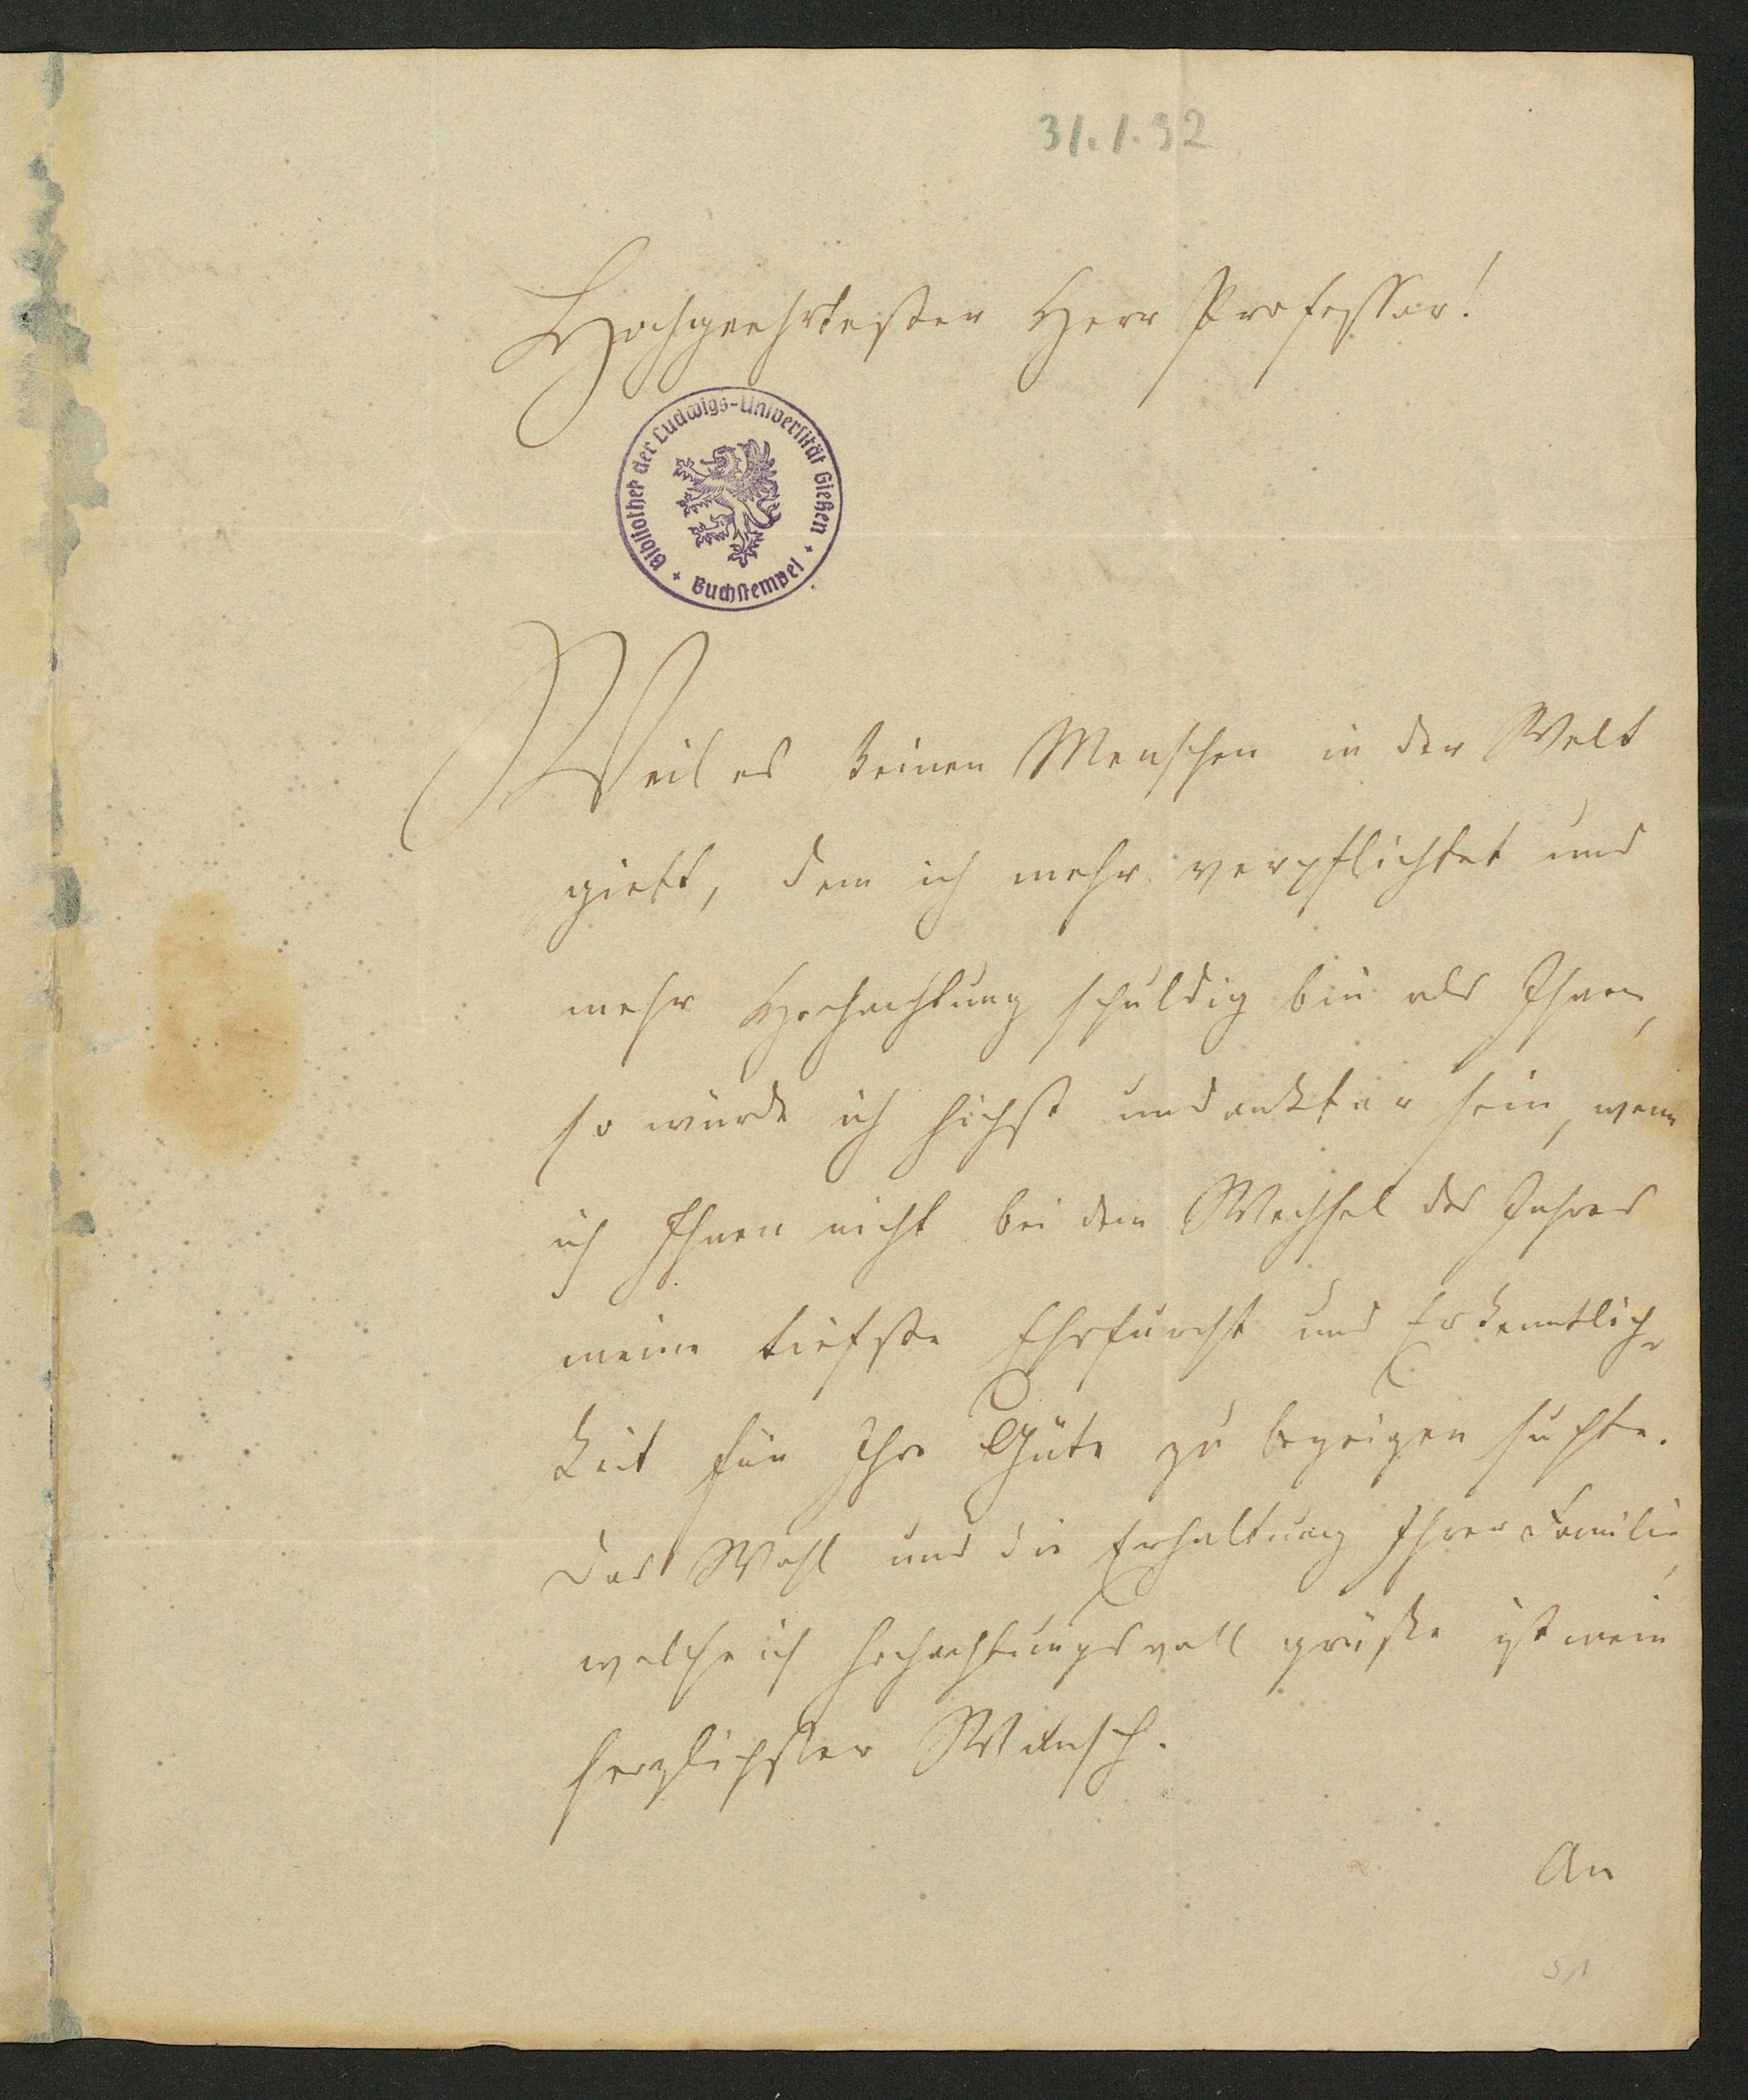 31.1.92
Hochgeehrtester Herr Professor!
Bibliothek der Ludwigs-Universität Gießen
Buchstempel
Weil es keinen Menschen in der Welt
giebt, dem ich mehr verpflichtet und
mehr Hochachtung schuldig bin als Ihnen,
so würde ich höchst undankbar sein, wenn
ich Ihnen nicht bei dem Wechsel des Jahres
meine tiefste Ehrfurcht und Erkenntlich-
keit für Ihre Güte zu bezeigen suchte.
Das Wohl und die Erhaltung Ihrer Familie,
welche ich hochachtungsvoll grüße ist mein
herzlichster Wunsch.
An
51